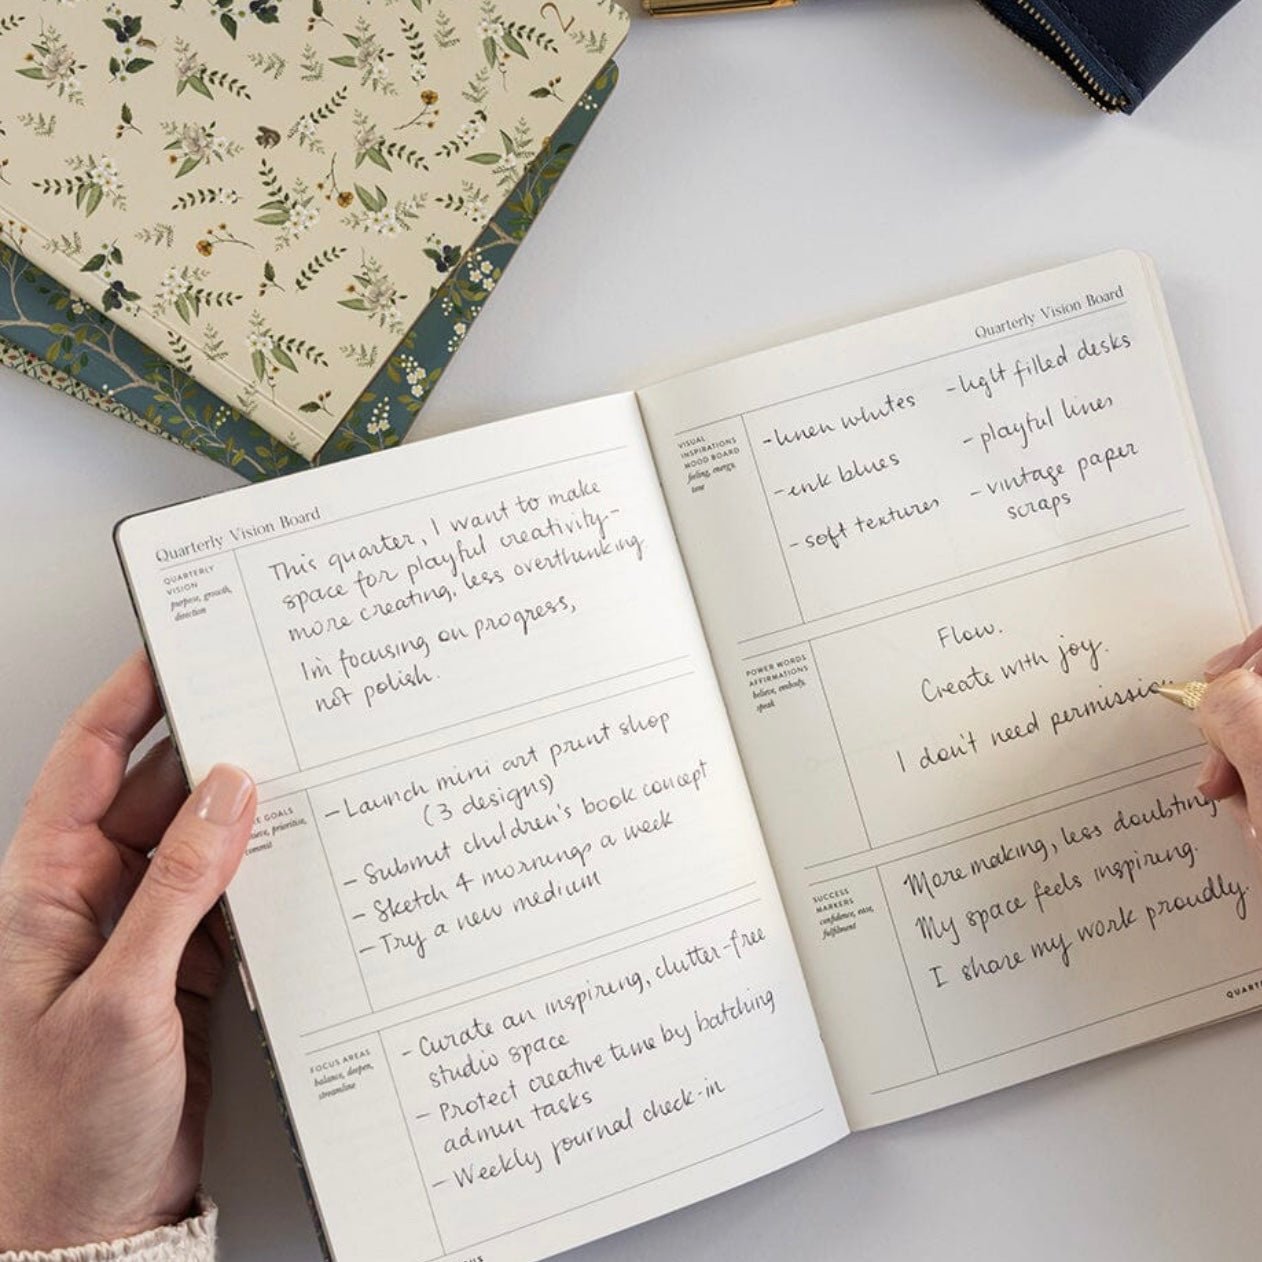 2
Quarterly Vision Board
QUARTERLY
VISION
purpose, growth,
direction
This quarter, I want to make
space for playful creativity-
more creating, less overthinking
I'm focusing on progress,
not polish.
GOALS
prioritize,
commit
-Launch mini art print shop
(3 designs)
- Submit children's book concept
- Sketch 4 mornings a week
- Try a new medium
FOCUS AREAS
balance, deepen,
streamline
- Curate an inspiring, clutter-free
studio space
- Protect creative time by batching
admin tasks
- Weekly journal check-in
Quarterly Vision Board
VISUAL
INSPIRATIONS
MOOD BOARD
feeling, energy,
tone
-linen whites
-ink blues
-soft textures
-light filled desks
- playful lines
- vintage paper
scraps
POWER WORDS
AFFIRMATIONS
believe, embody,
speak
Flow.
Create with joy.
I don't need permission
SUCCESS
MARKERS
confidence, ease,
fulfilment
More making, less doubting.
My space feels inspiring.
I share my work proudly.